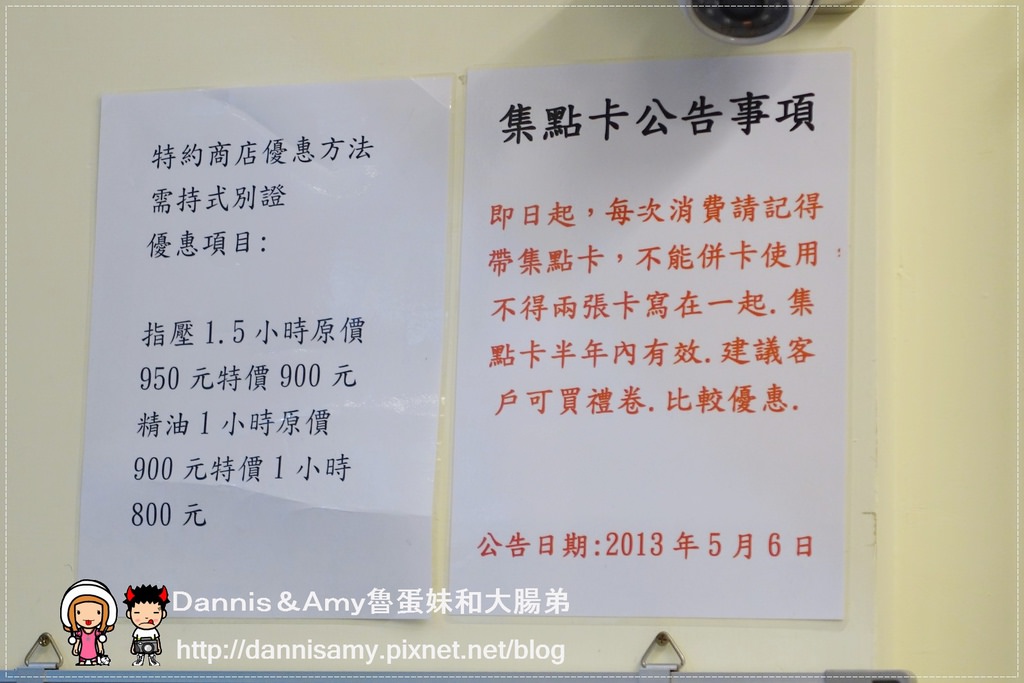 特約商店優惠方法
需持式別證
優惠項目:
指壓 1.5 小時原價
950 元特價 900 元
精油 1 小時原價
900 元特價 1 小時
800 元
集點卡公告事項
即日起，每次消費請記得
帶集點卡，不能併卡使用，
不得兩張卡寫在一起. 集
點卡半年內有效. 建議客
戶可買禮卷. 比較優惠.
公告日期:2013 年 5 月 6 日
Dannis&Amy魯蛋妹和大腸弟
http://dannisamy.pixnet.net/blog